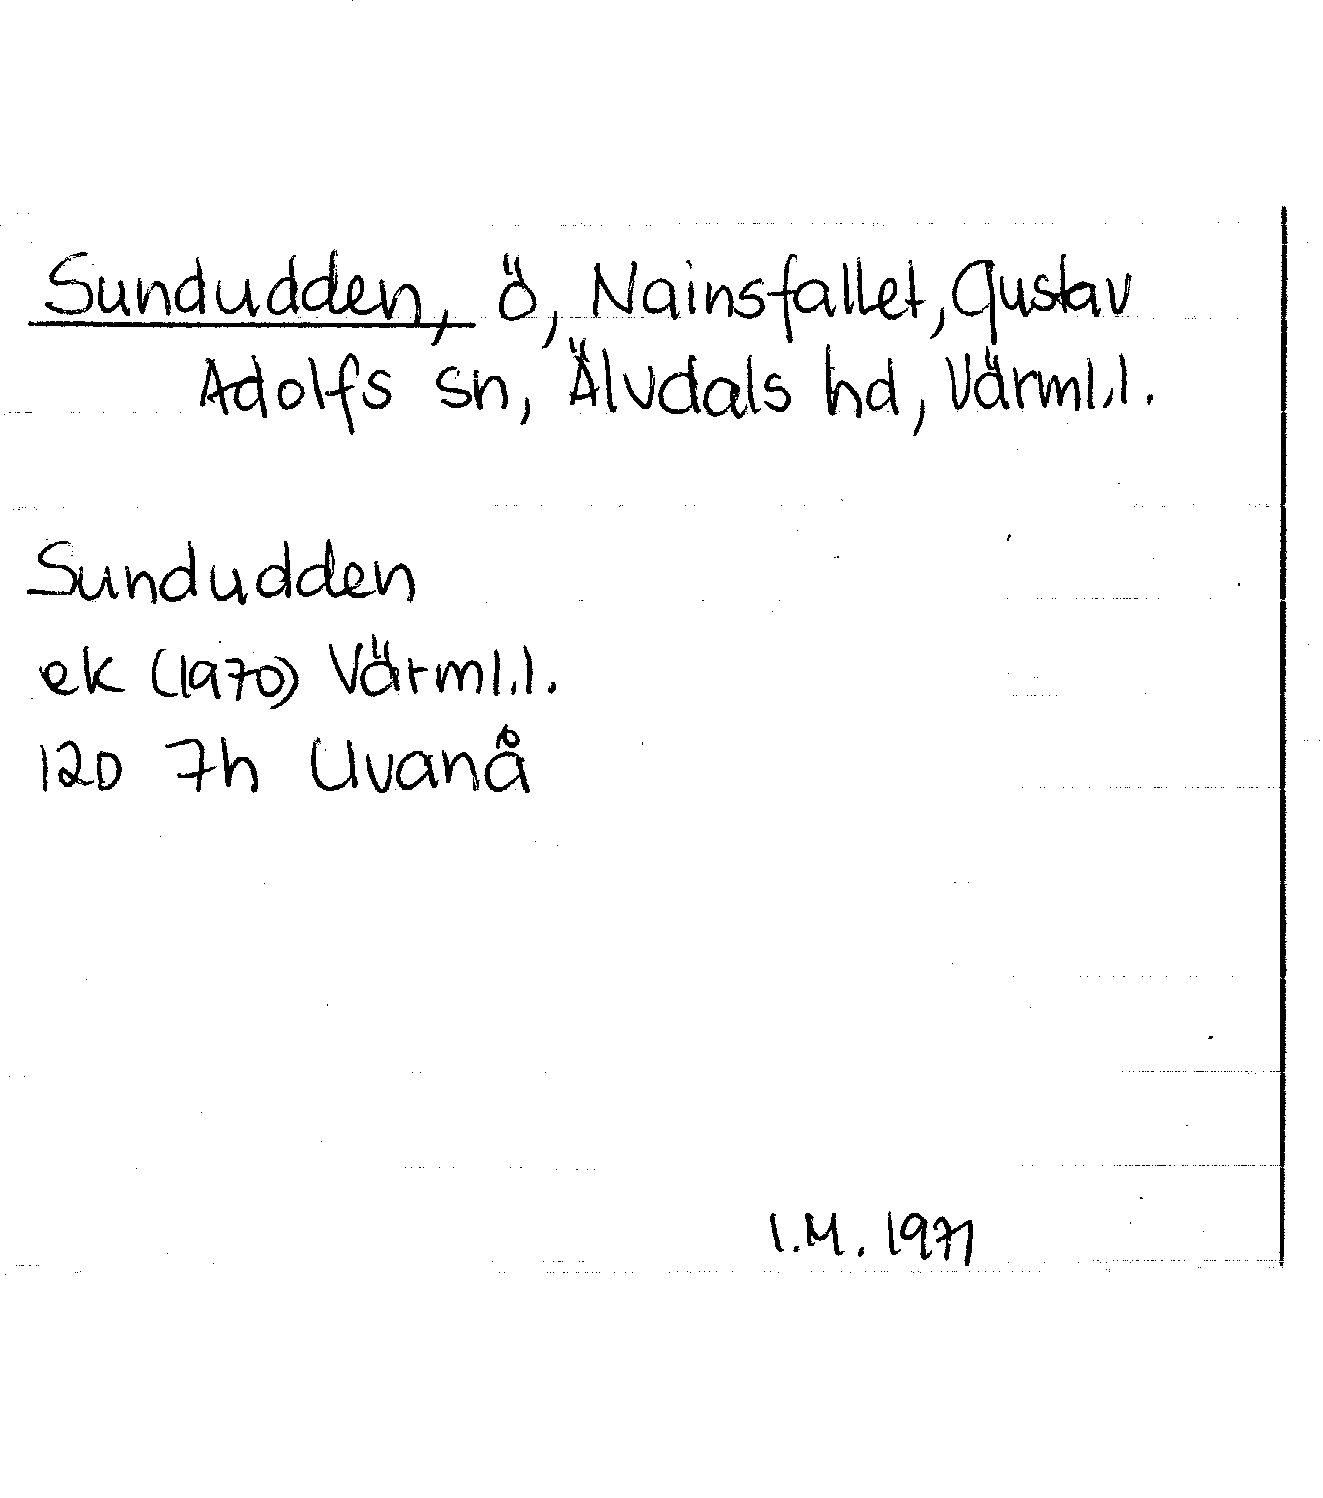 Sundudden, ö, Nainsfallet, Gustav
Adolfs sn, Älvdals hd, Värml.l.
Sundudden
ek (1970) Värml.l.
120 7h Uvanå
I.M. 1971